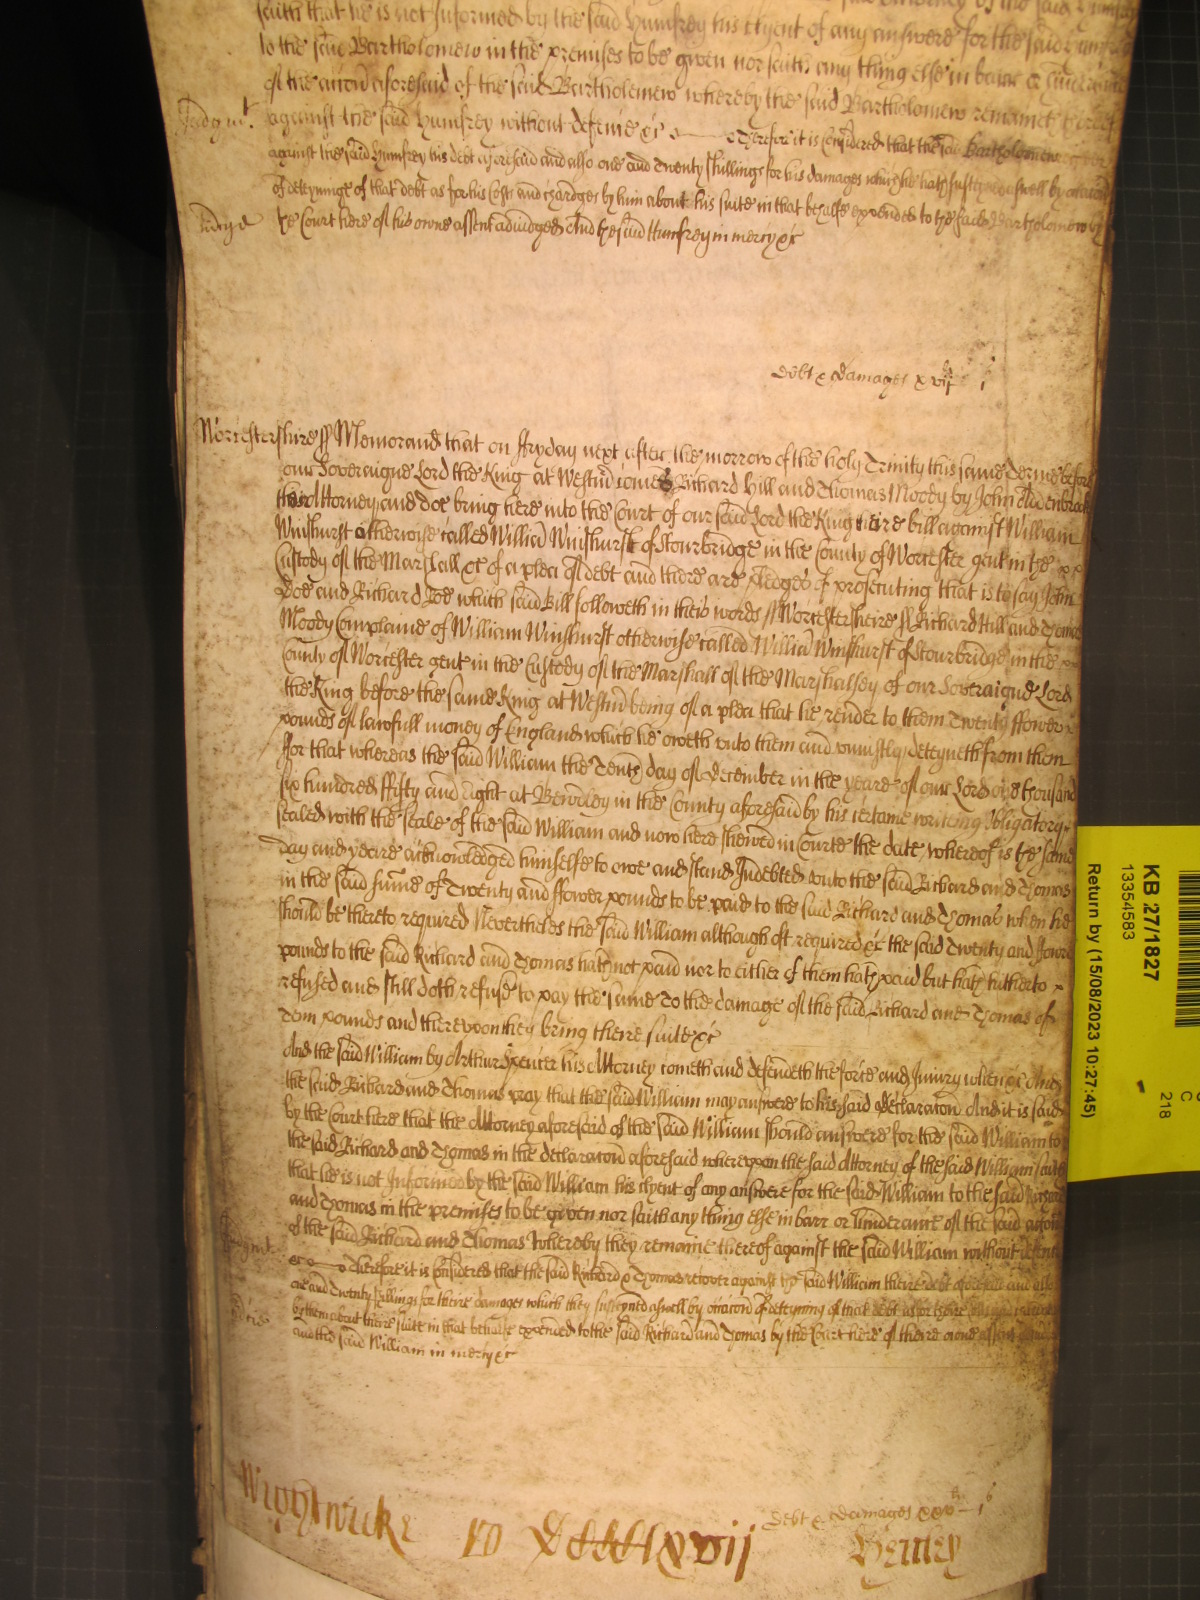 saith that he is not Informed by the said Humfrey his clyent of any answere for the said Humfrey
to the said Bartholomew in the premises to be given nor saith any thing else in barr or hinderance
of the accon aforesaid of the said Bartholomew whereby the said Bartholomew remaines thereof
Judgmt. against the said Humfrey without defence &c Therefore it is Considered that the said Bartholomew
against the said Humfrey his debt aforesaid and also one and Twenty shillings for his damages which he hath susteyned aswell by occacon
of deteyninge of that debt as for his Costs and chardges by him about his suite in that behalfe expended to the said Bartholomew by
the Court here of his owne assent adiudged And the said Humfrey in mercy &c
debt & damages xvij li i s
Worcestershire ss Memorand that on ffryday next after the morrow of the holy Trinity this same Terme before
our Soveraigne Lord the King at Westm̃ comes Richard Hill and Thomas Moody by John Addenbrooke
their Attorney and doe bring here into the Court of our said Lord the King theire bill against William
Winshurst otherwise called Willm̃ Winshurst of Stourbridge in the County of Worcester gent in the
Custody of the Marshall &c of a plea of debt and there are pledges of prosecuting that is to say John
Doe and Richard Roe which said Bill followeth in theis words ss Worcestersheire ss Richard Hill and Thomas
Moody Complaine of William Winshurst otherwise called Willm̃ Winshurst of Stourbridge in the
County of Worcester gent in the Custody of the Marshall of the Marshalsey of our Soveraigne Lord
the King before the same King at Westm̃ being of a plea that he render to them Twenty ffower
pounds of lawfull money of England which he oweth unto them and uniustly deteyneth from them
ffor that whereas the said William the Tenth day of December in the yeare of our Lord one thousand
six hundred ffifty and Eight at Bewdley in the County aforesaid by his certaine writeing Obligatory
sealed with the seale of the said William and now here shewed in Courte the date whereof is the same
day and yeare acknowledged himselfe to owe and stand Indebted unto the said Richard and Thomas
in the said summe of Twenty and ffower pounds to be paid to the said Richard and Thomas when he
should be thereto required Neverthelesse the said William although oft required &c the said Twenty and fower
pounds to the said Richard and Thomas hath not paid nor to either of them hath paid but hath hitherto
refused and still doth refuse to pay the same To the damage of the said Richard and Thomas of
Tenn pounds and thereupon they bring theire suite &c
And the said William by Arthur Spencer his Attorney cometh and defendeth the force and Iniury when &c And
the said Richard and Thomas pray that the said William may answere to his said declaracon And it is said
by the Court here that the Attorney aforesaid of the said William should answere for the said William to
the said Richard and Thomas in the declaracon aforesaid whereupon the said Attorney of the said William saith
that he is not Informed by the said William his clyent of any answere for the said William to the said Richard
and Thomas in the premises to be given nor saith any thing else in barr or hinderance of the said accon
of the said Richard and Thomas whereby they remaine thereof against the said William without defence
Judgmt &c Therefore it is Considered that the said Richard & Thomas recover against the said William theire debt aforesaid and also
one and Twenty shillings for theire damages which they susteyned aswell by occacon of deteyning of that debt as for theire
by them about theire suite in that behalfe expended to the said Richard and Thomas by the Court here of theire owne assent
and the said William in mercy &c
debt & damages xxv li i s
Wightwicke Ro Henley
KB 27/1827
13354583
Return by (15/08/2023 10:27:45)
C
218